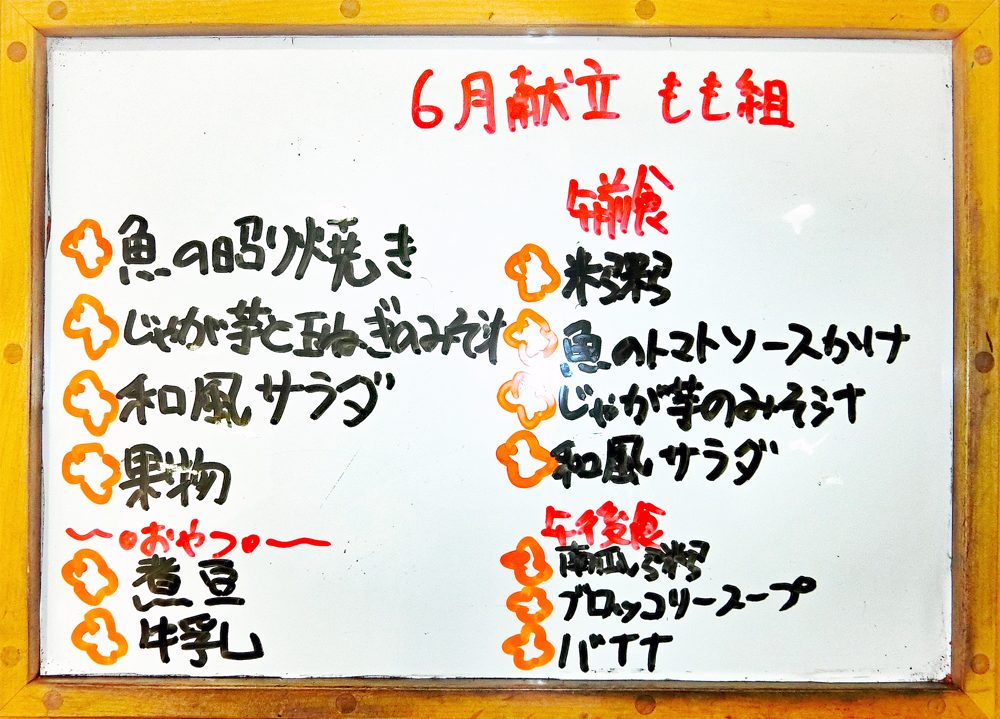 6月献立 もも組
魚の照り焼き
じゃが芋と玉ねぎのみそ汁
和風サラダ
果物
〜•おやつ•〜
煮豆
牛乳
午前食
米粥
魚のトマトソースかけ
じゃが芋のみそ汁
和風サラダ
午後食
南瓜粥
ブロッコリースープ
バナナ